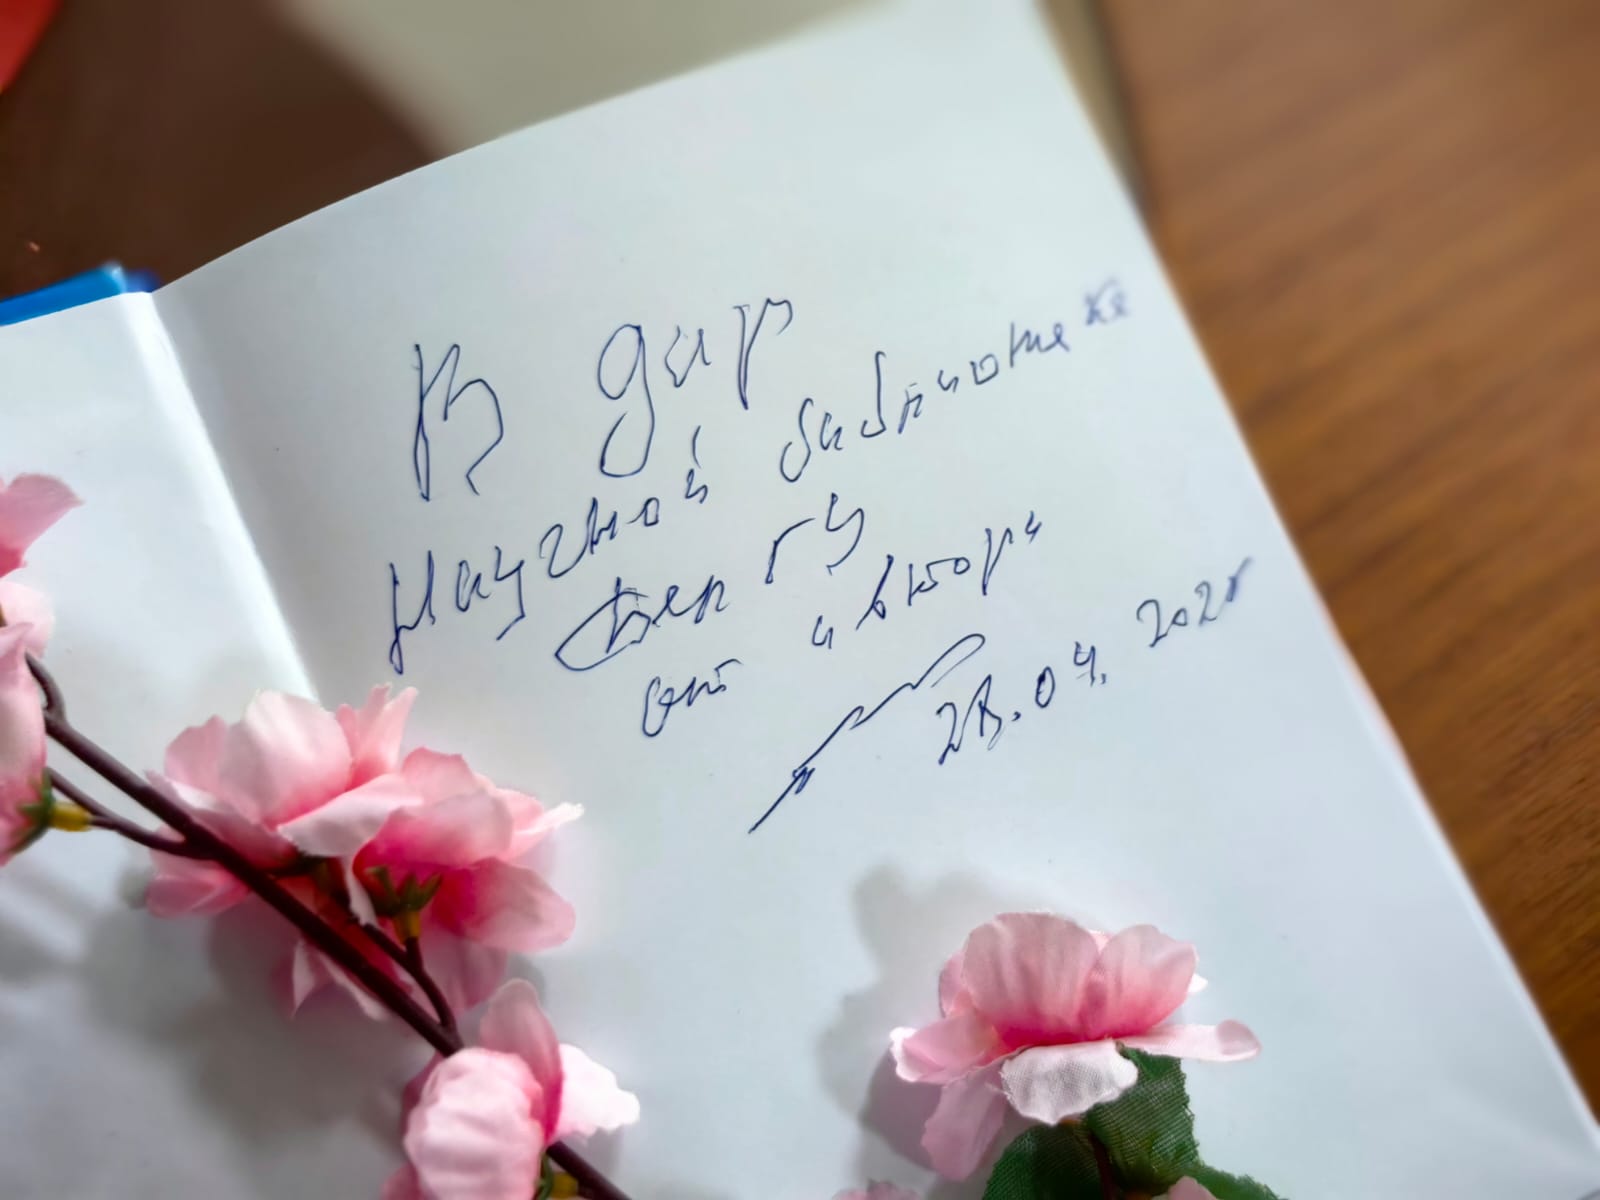 В дар
Научной библиотеке
БелГУ
от автора
28.04.202